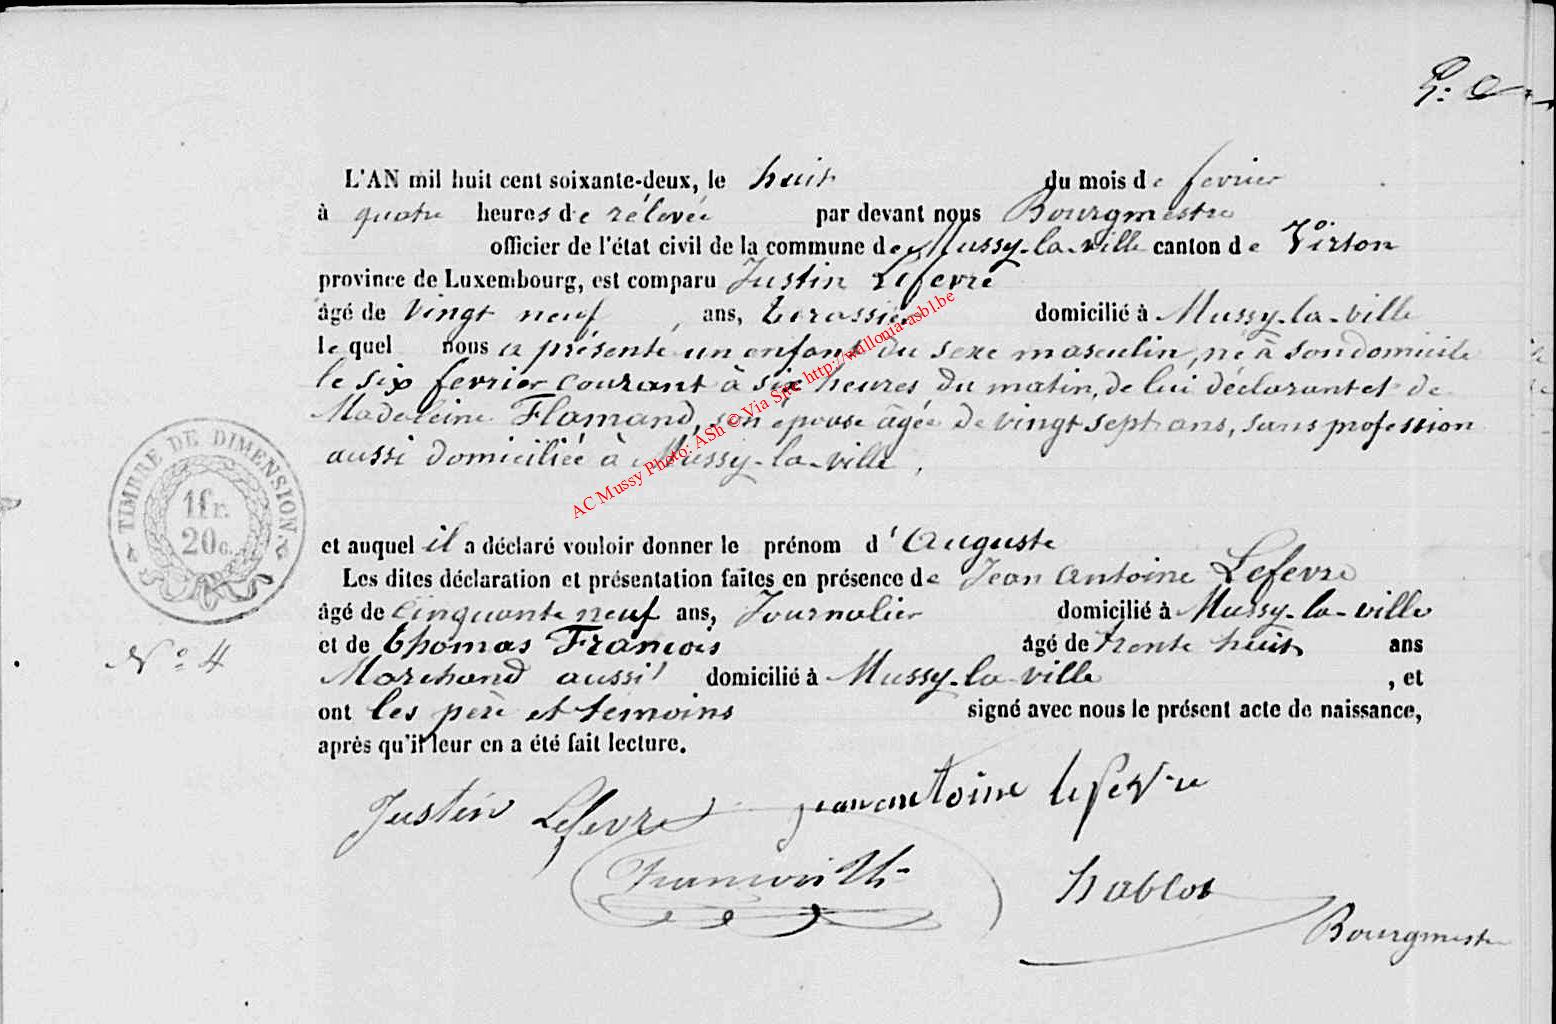 L'AN mil huit cent soixante-deux, le huit du mois de fevrier
à quatre heures de rélevée par devant nous Bourgmestre
officier de l'état civil de la commune de Mussy-la-ville canton de Virton
province de Luxembourg, est comparu Justin Lefevre
âgé de vingt neuf ans, domicilié à Mussy-la-ville
lequel nous a présenté un enfant du sexe masculin, né à son domicile
le six fevrier courant à six heures du matin, de lui déclarant et de
Madeleine Flamand, son épouse âgée de vingt sept ans, sans profession
aussi domiciliée à Mussy-la-ville,
AC Mussy Photo: ASh © Via Site http://wallonia-asbl.be
TIMBRE DE DIMENSION
1fr.
20c.
et auquel il a déclaré vouloir donner le prénom d'Auguste
Les dites déclaration et présentation faites en présence de Jean Antoine Lefevre
âgé de cinquante neuf ans, Journalier domicilié à Mussy-la-ville
et de Thomas François âgé de trente huit ans
N° 4
Marchand aussi domicilié à Mussy-la-ville, et
ont les père et témoins signé avec nous le présent acte de naissance,
après qu'il leur en a été fait lecture.
Justin Lefevre jean antoine lefevre
François Th-
Hablot
Bourgmestre